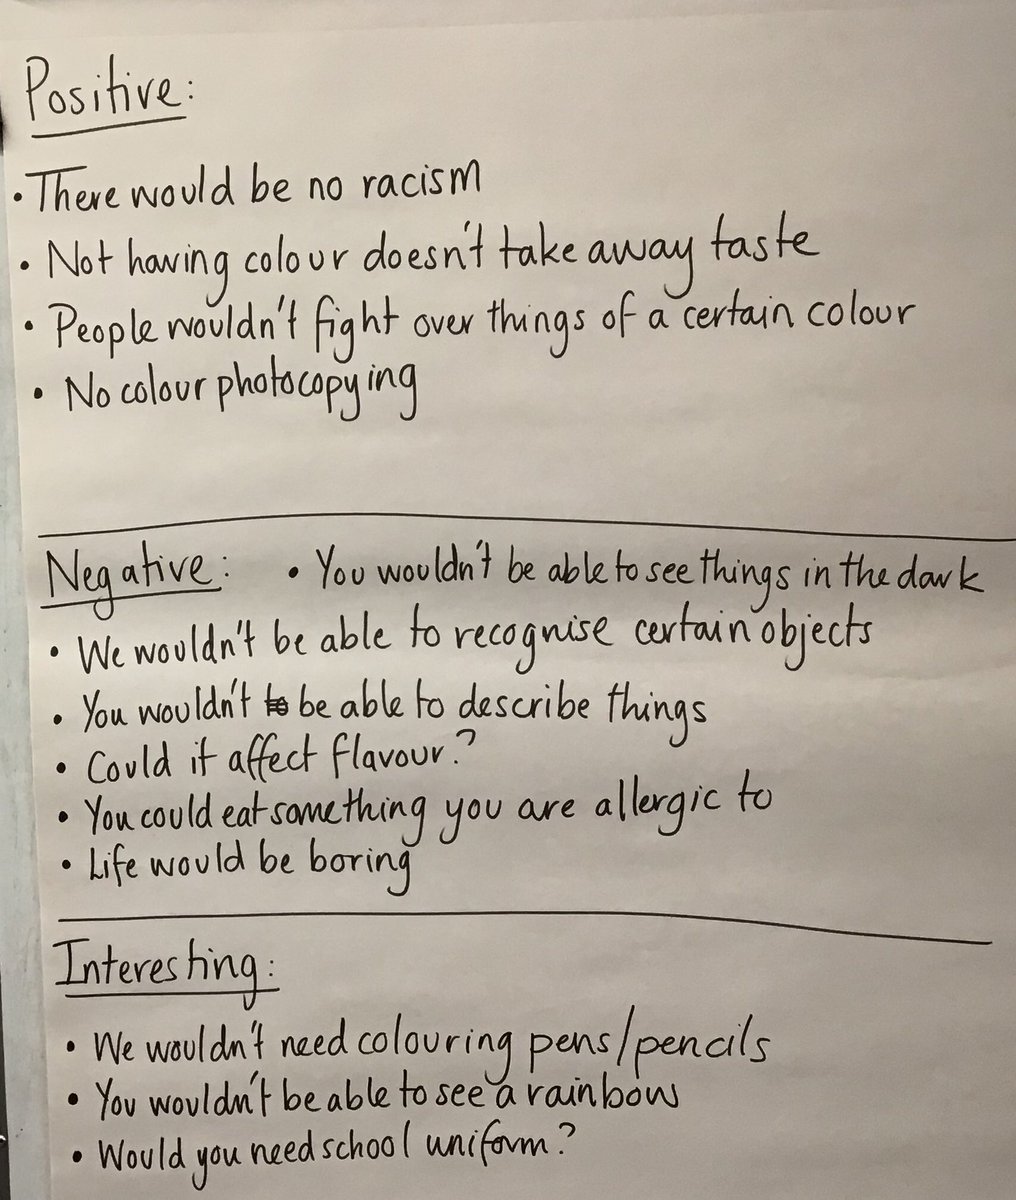 Positive:
• There would be no racism
• Not having colour doesn't take away taste
• People wouldn't fight over things of a certain colour
• No colour photocopying
Negative: • You wouldn't be able to see things in the dark
• We wouldn't be able to recognise certain objects
• You wouldn't be able to describe things
• Could it affect flavour?
• You could eat something you are allergic to
• Life would be boring
Interesting:
• We wouldn't need colouring pens/pencils
• You wouldn't be able to see a rainbow
• Would you need school uniform?